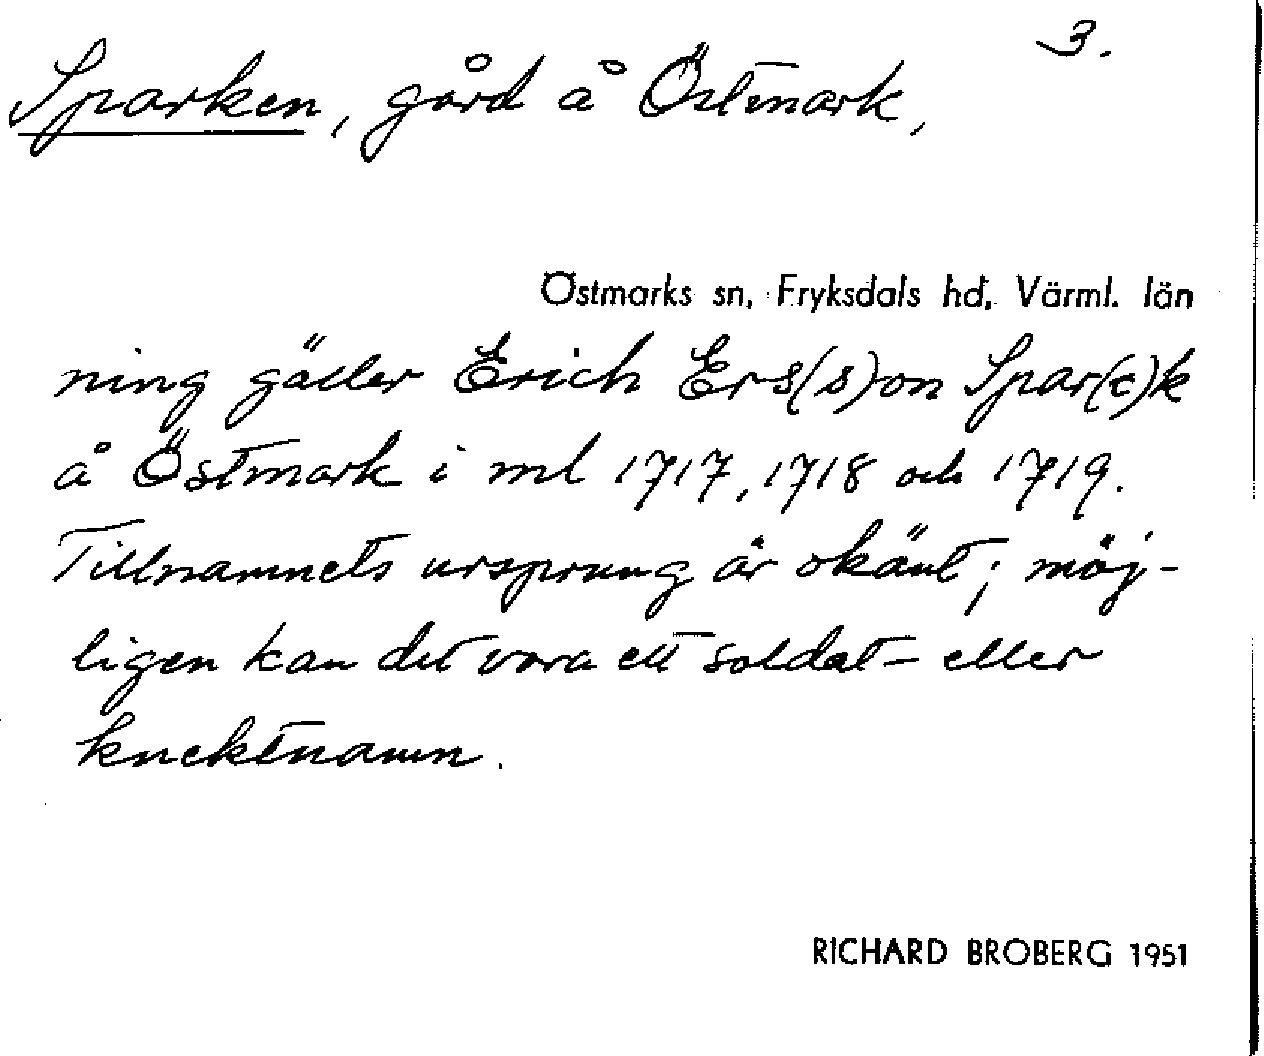 3.
Sparken, gård å Östmark,
Östmarks sn, Fryksdals hd, Värml. län
ning gäller Erich Ers(s)on Spar(c)k
å Östmark i ml 1717, 1718 och 1719.
Tillnamnets ursprung är okänt; möj-
ligen kan det vara ett soldat- eller
knektnamn.
RICHARD BROBERG 1951